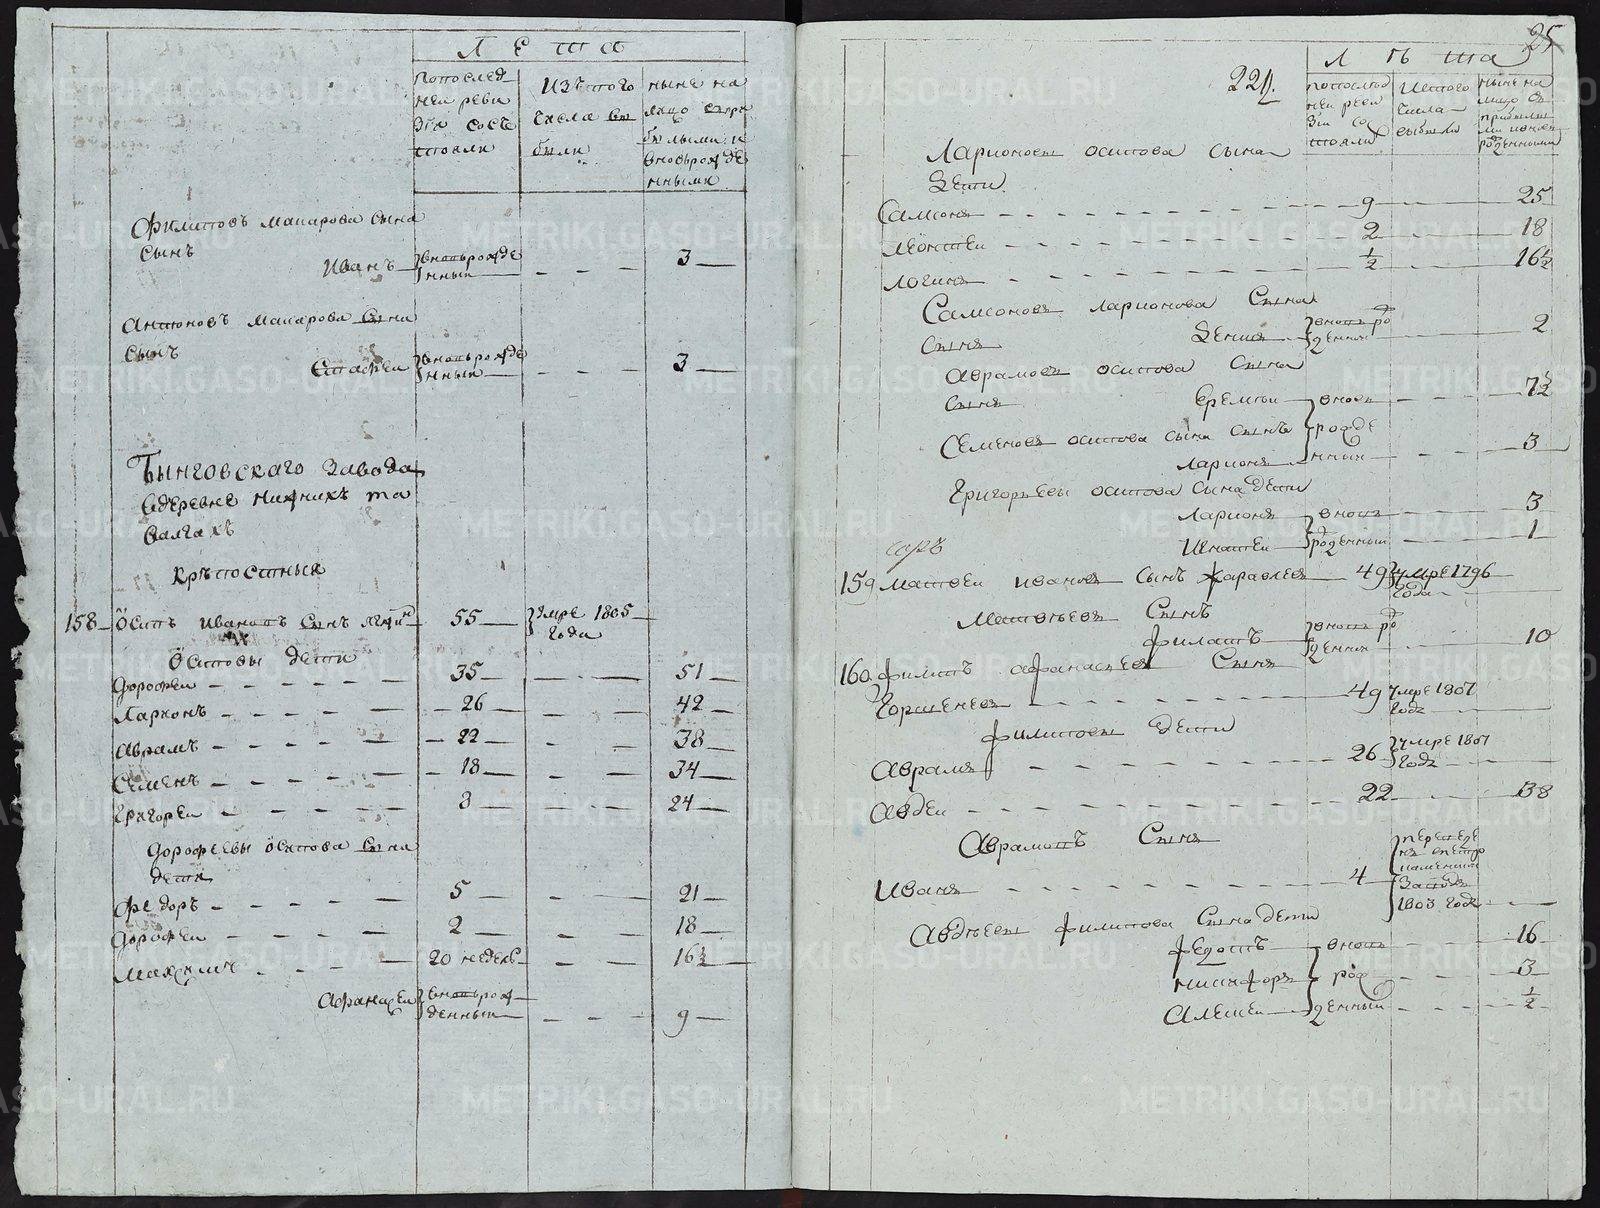 Л ѣ т а
попослед
ней реви
зіи состо
тояли
изътого
числа вы
были
ныне на
лицо спри
былыми и
вновьрожде
нными
Филиповъ макарова сына
сынъ
Иванъ вновьрожде 3
нныи
Антоновъ макарова сына
сынъ
Стафеи вновьрожде 3
нныи
Бынговскаго завода
вдеревне нижнихъ та
валгахъ
крѣпостныя
158 Осипъ ивановъ сынъ 55 умре 1805
года
Осиповы дети
дорофеи 35 51
Ларионъ 26 42
Аврамъ 22 38
Семенъ 18 34
Григореи 8 24
дорофеевы осипова сына
дети
федоръ 5 21
дорофеи 2 18
20 недель 16½
Афанасеи вновьрож
денныи 9
25
229.
Л ѣ т а
попослѣд
ней реви
зіи со
стояли
изтого
числа
выбыли
ныне на
лицо съ
прибылы
ми ивновь
рожденными
Ларионовы осипова сына
дети
Самсонъ 9 25
леонтеи 2 18
логинъ ½ 16½
Самсоновъ ларионова сына
сынъ Денисъ вновь ро 2
жденныи
Аврамовъ осипова сына
сынъ Еремеи вновь 7½
Семеновъ осипова сына сынъ рожде
Ларионъ нныи 3
Григорьевы осипова сына дети
Ларионъ вновь 3
Игнатеи рожденныи 1
159 матвеи ивановъ сынъ жаравлевъ 49 умре 1796
года
Матвѣевъ сынъ
филатъ вновь ро 10
жденныи
160 филипъ афанасьевъ сынъ
Горшеневъ 49 умре 1807
года
филиповы дети
Аврамъ 26 умре 1807
года
Авдеи 22 38
Аврамовъ сынъ
Иванъ 4 переведе
нъ впетро
каменскои
заводъ
1803 года
Авдѣевы филипова сына дети
федотъ вновь 16
никифоръ рож 3
Алексеи денныи ½